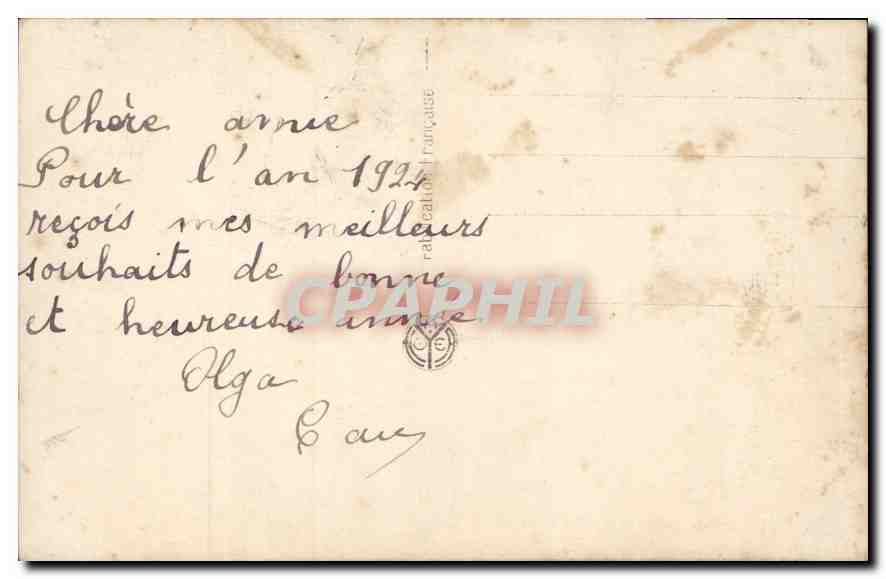 Chère amie
Pour l'an 1924
reçois mes meilleurs
souhaits de bonne
et heureuse année
Olga
Fabrication Française
CPAPHIL